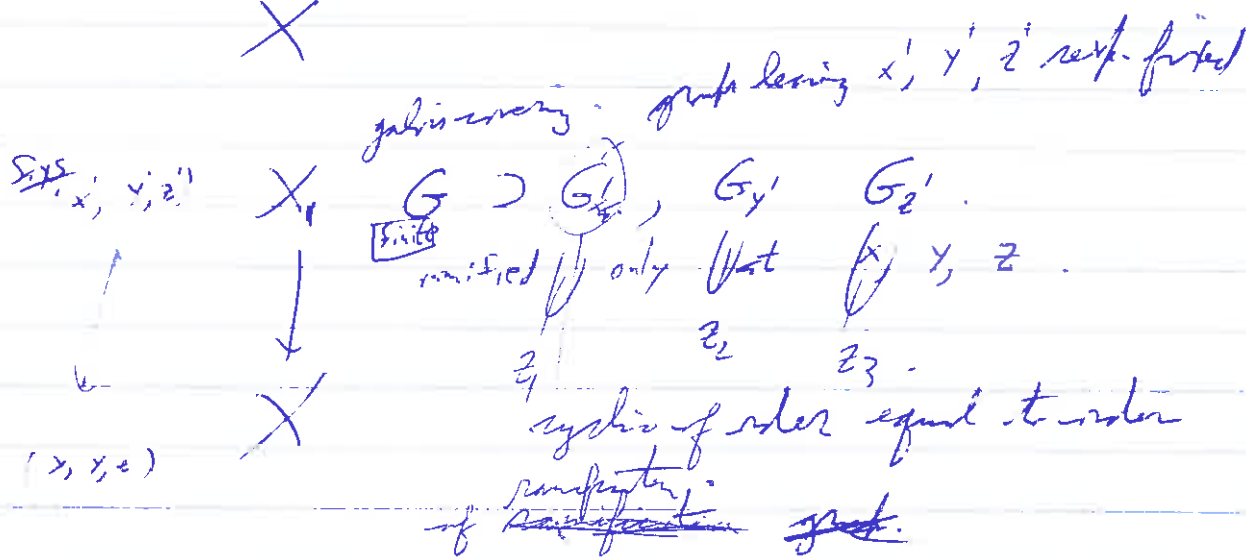 X
galois covering. group leaving x', y', z' resp. fixed
x', y', z' X₁ G ⊃ G_x', G_y' G_z'.
finite
ramified only at x, y, z.
z₁ z₂ z₃.
(x, y, z) X cyclic of order equal to order
of ramification